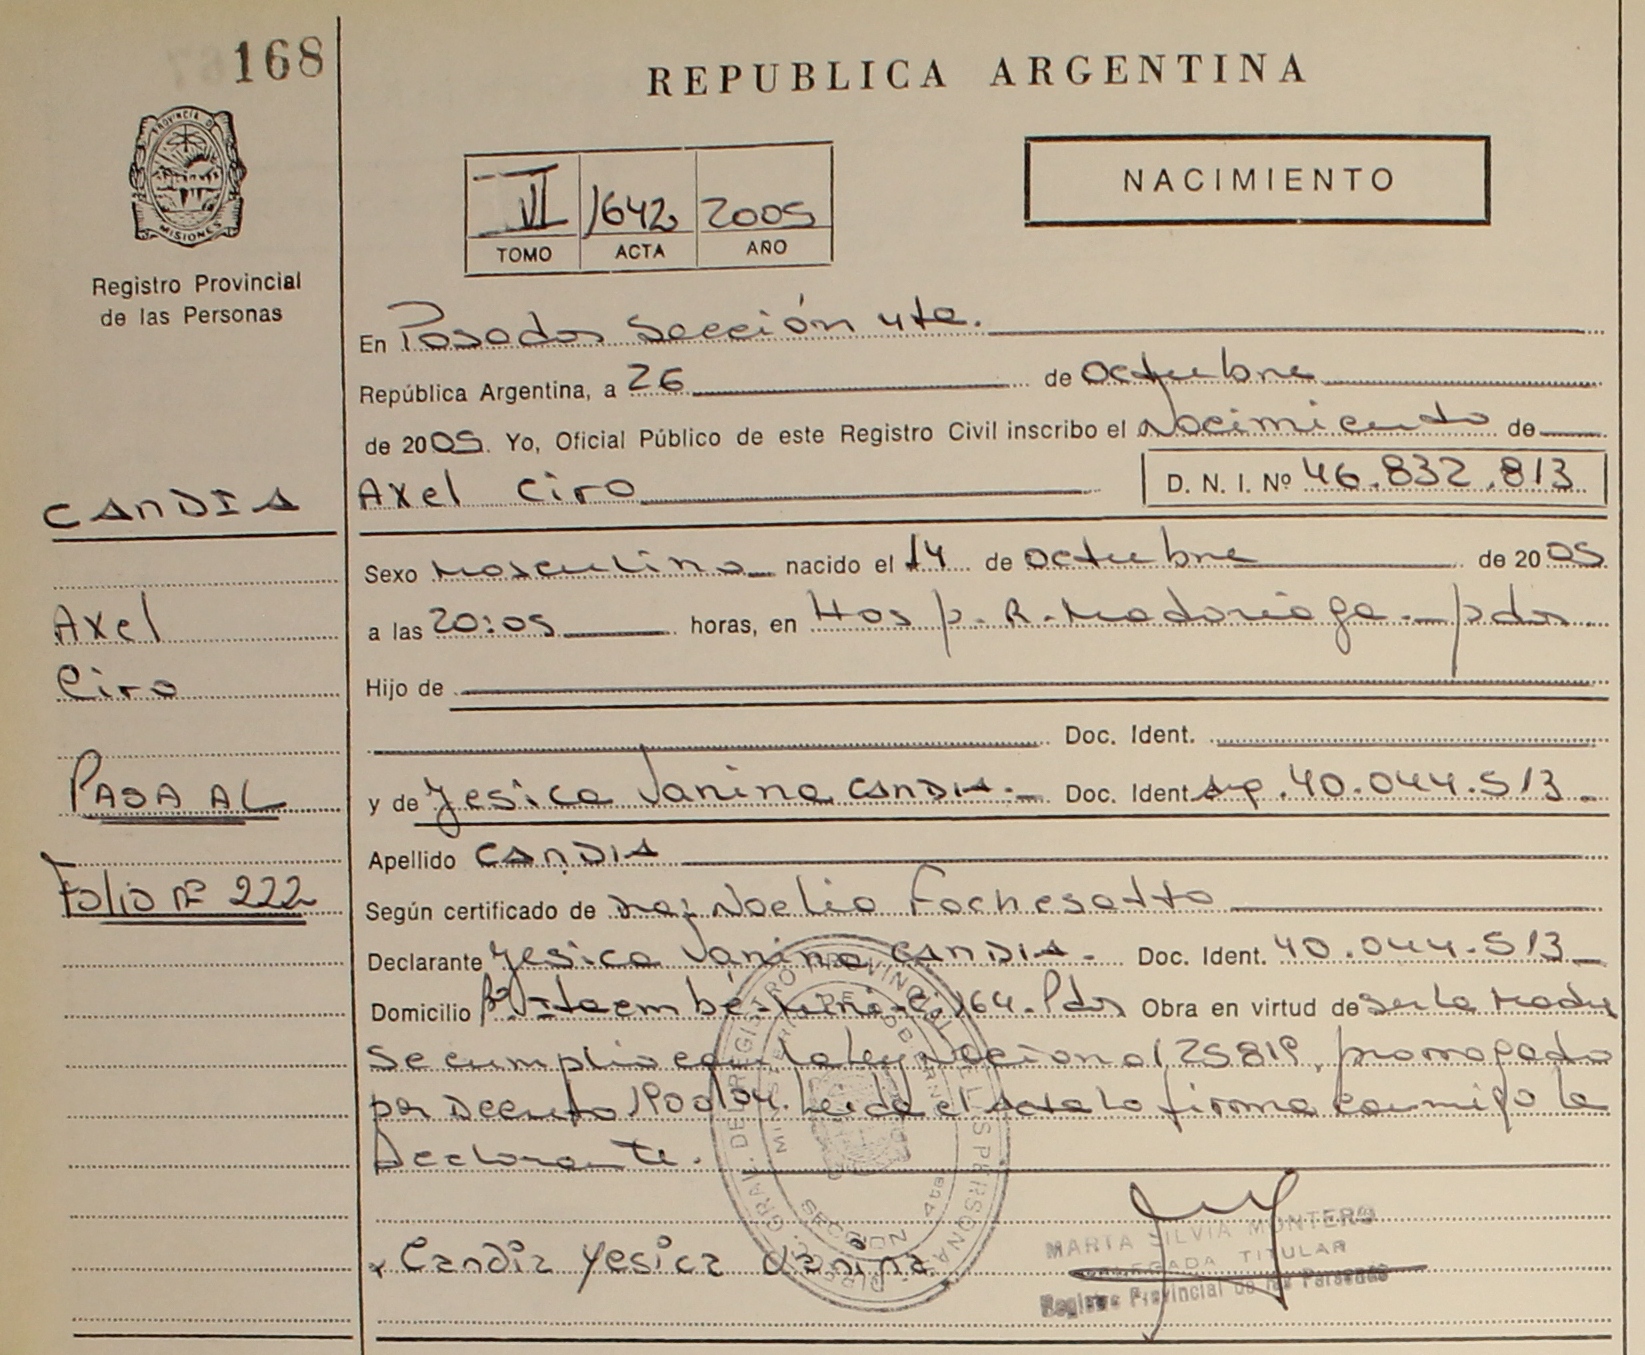 168
REPUBLICA ARGENTINA
PROVINCIA D
MISIONES
Registro Provincial
de las Personas
VI 1642 2005
TOMO ACTA AÑO
NACIMIENTO
En Posadas Sección 4ta.
República Argentina, a 26 de octubre
de 2005. Yo, Oficial Público de este Registro Civil inscribo el Nacimiento de
Axel Ciro D. N. I. Nº 46.832.813
CANDIA
Sexo Masculino nacido el 14 de octubre de 2005
Axel
a las 20:05 horas, en Hosp. R. Madariaga - pdas
Ciro
Hijo de
Doc. Ident.
PASA AL
y de Yesica Vanina CANDIA.- Doc. Ident. 40.044.513
Apellido CANDIA
Folio nº 222
Según certificado de Noelia Fochesatto
Declarante Yesica Vanina CANDIA. Doc. Ident. 40.044.513
Domicilio Bº Itaembé Miní C. 164. Pdas Obra en virtud de ser la Madre
Se cumplio con la ley Nacional 25819, prorrogado
por Decreto 1900/04. Leida el Acta la firma conmigo la
Declarante.
Candia Yesica Vanina
MARIA SILVIA MONTERO
DELEGADA TITULAR
Registro Provincial de las Personas